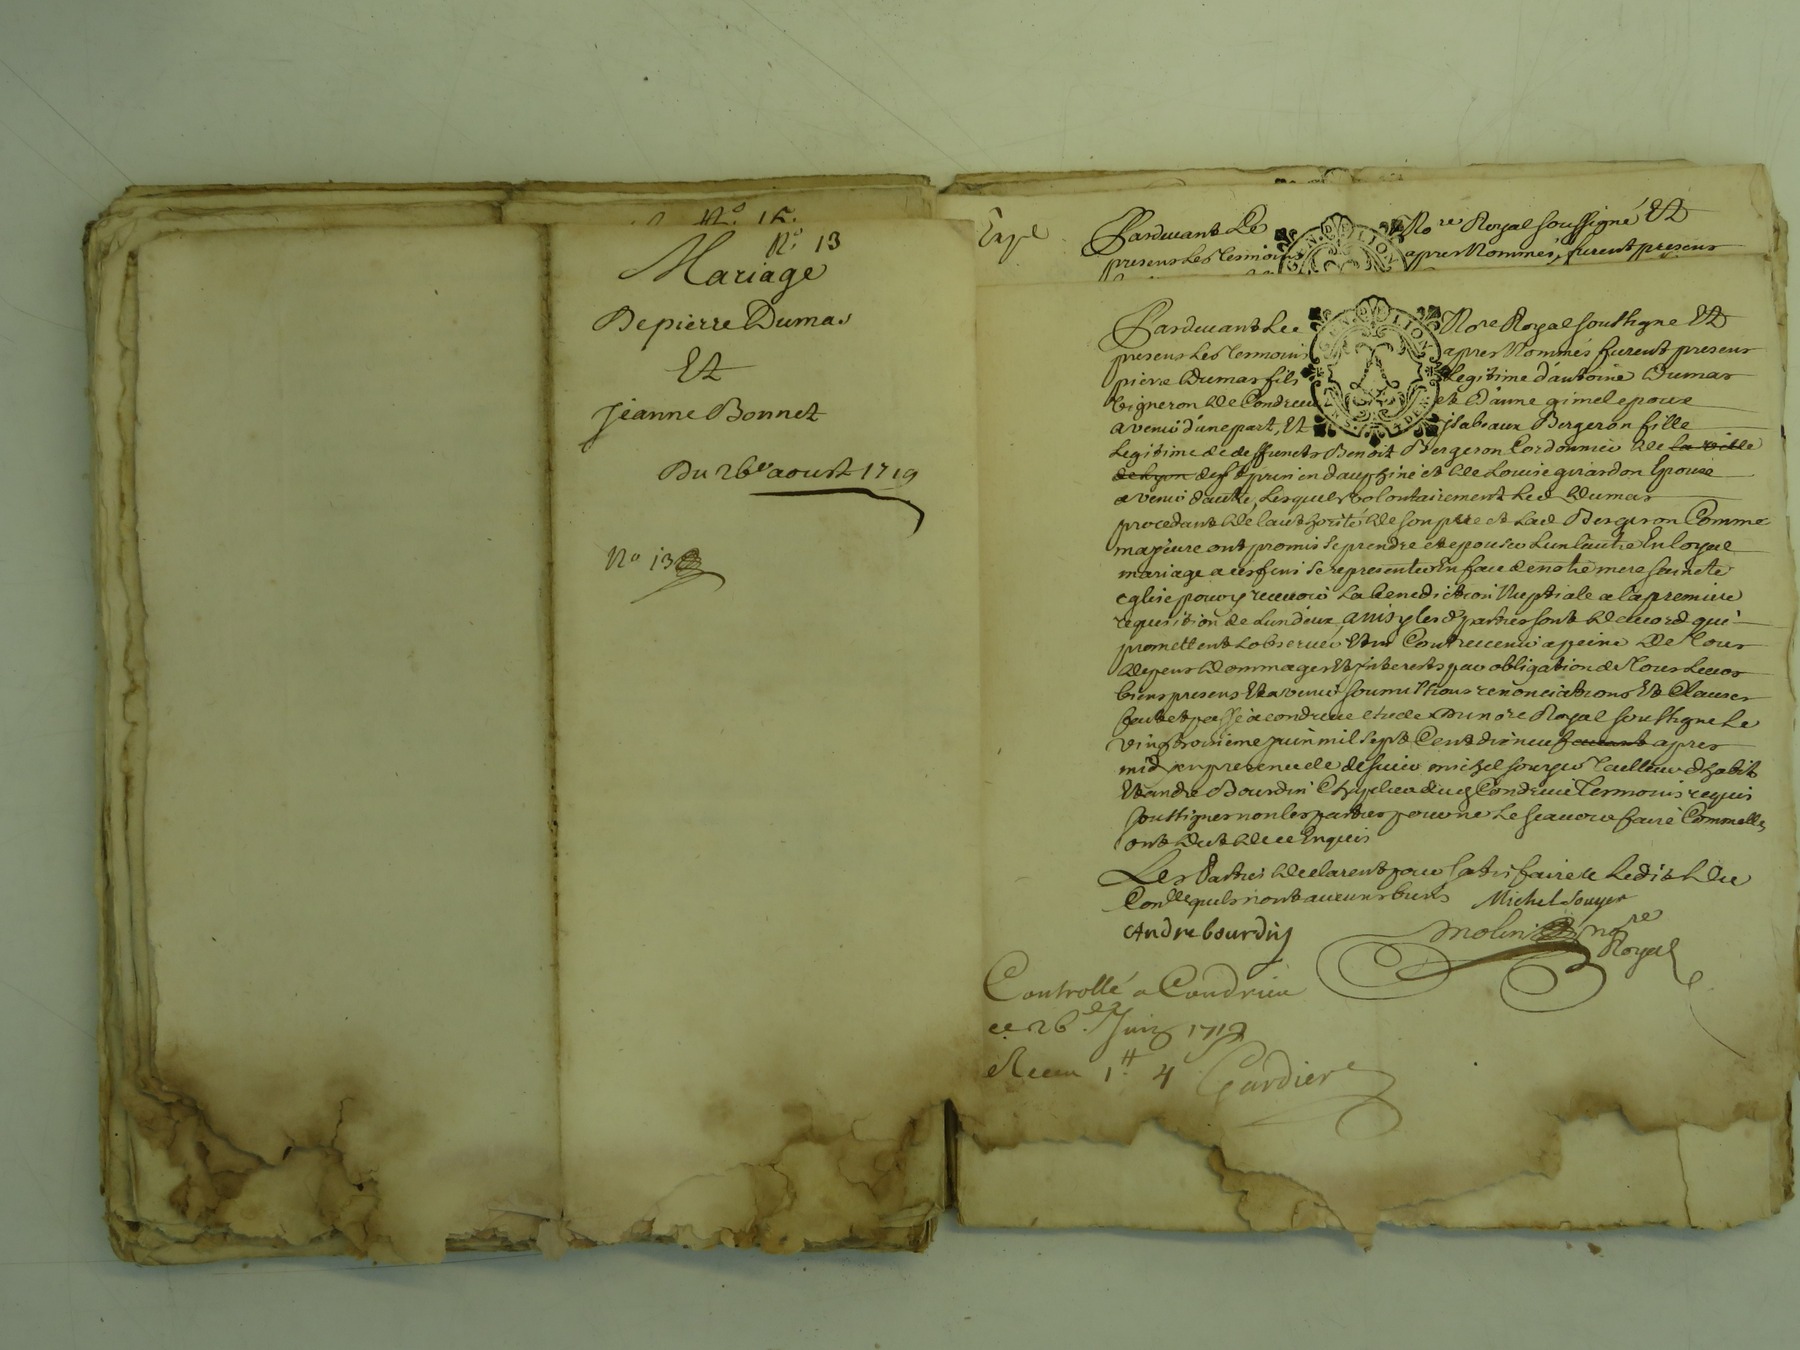 N.º 15.
N.º 13
Mariage
De pierre Dumas
Et
Jeanne Bonnet
Du 26e aoust 1719
No 13
Expé
Pardevant Le No.re Royal soussigné Et
presens Les Tesmoins apres Nommés, furent presens
Pardevant Le No.re Royal soussigne Et
presens Les Tesmoins apres Nommés furent presens
pierre Dumas fils Legitime d'antoine Dumas
vigneron de Condrieu et D'anne gimel epoux
a venir d'une part, Et jsabeaux Bergeron fille
Legitime de deffuncts Benoit Bergeron Cordonnier de la ville
de Lyon de en dauphiné et de Louise girardon Epouse
a venir d'autre, Lesquels volontairement Led Dumas
procedant de l'authorité de son pere et Lad Bergeron Comme
majeure ont promis se prendre et epouser L'un L'autre En loyal
mariage a ces fins se representer En face de notre mere saincte
eglise pour y recevoir La benediction Nuptiale a la premiere
requisition de L'un d'eux, ainsy les d parties sont d'accord qui
promettent L'observer Et ny Contrevenir a peine de Tous
depens dommages Et jnterests par obligation de Tous Leurs
biens presens Et a venir soumissions renonciations Et Clauses
fait et passé a condrieu etude Du no.re Royal soussigne Le
vingtroisieme juin mil sept Cent dixneuf avant apres
midy en presence de michel souyer Tailleur d'habits
Et andré Bourdin dud Condrieu Tesmoins requis
soussignes non les parties pour ne Le scavoir faire Comme elles
ont dit de ce Enquis
Les Parties declarent pour satisfaire a Ledit du
Con.lle quils n'ont aucuns biens Michel Souyer
Andre bourdin
molin no.re
Royal
Controllé a Condrieu
ce 26.e Juin 1719
Receu 1.tt 4 Gardiere